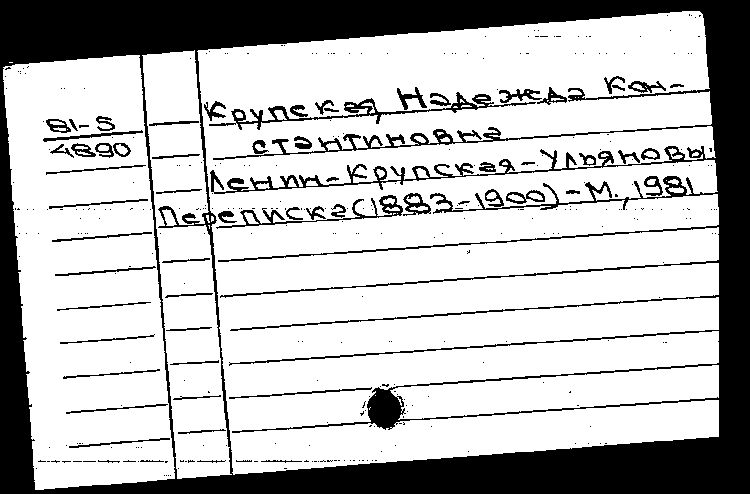 Крупская, Надежда Кон-
81-5
4890
стантиновна
Ленин-Крупская-Ульяновы:
Переписка (1883-1900) - М., 1981.